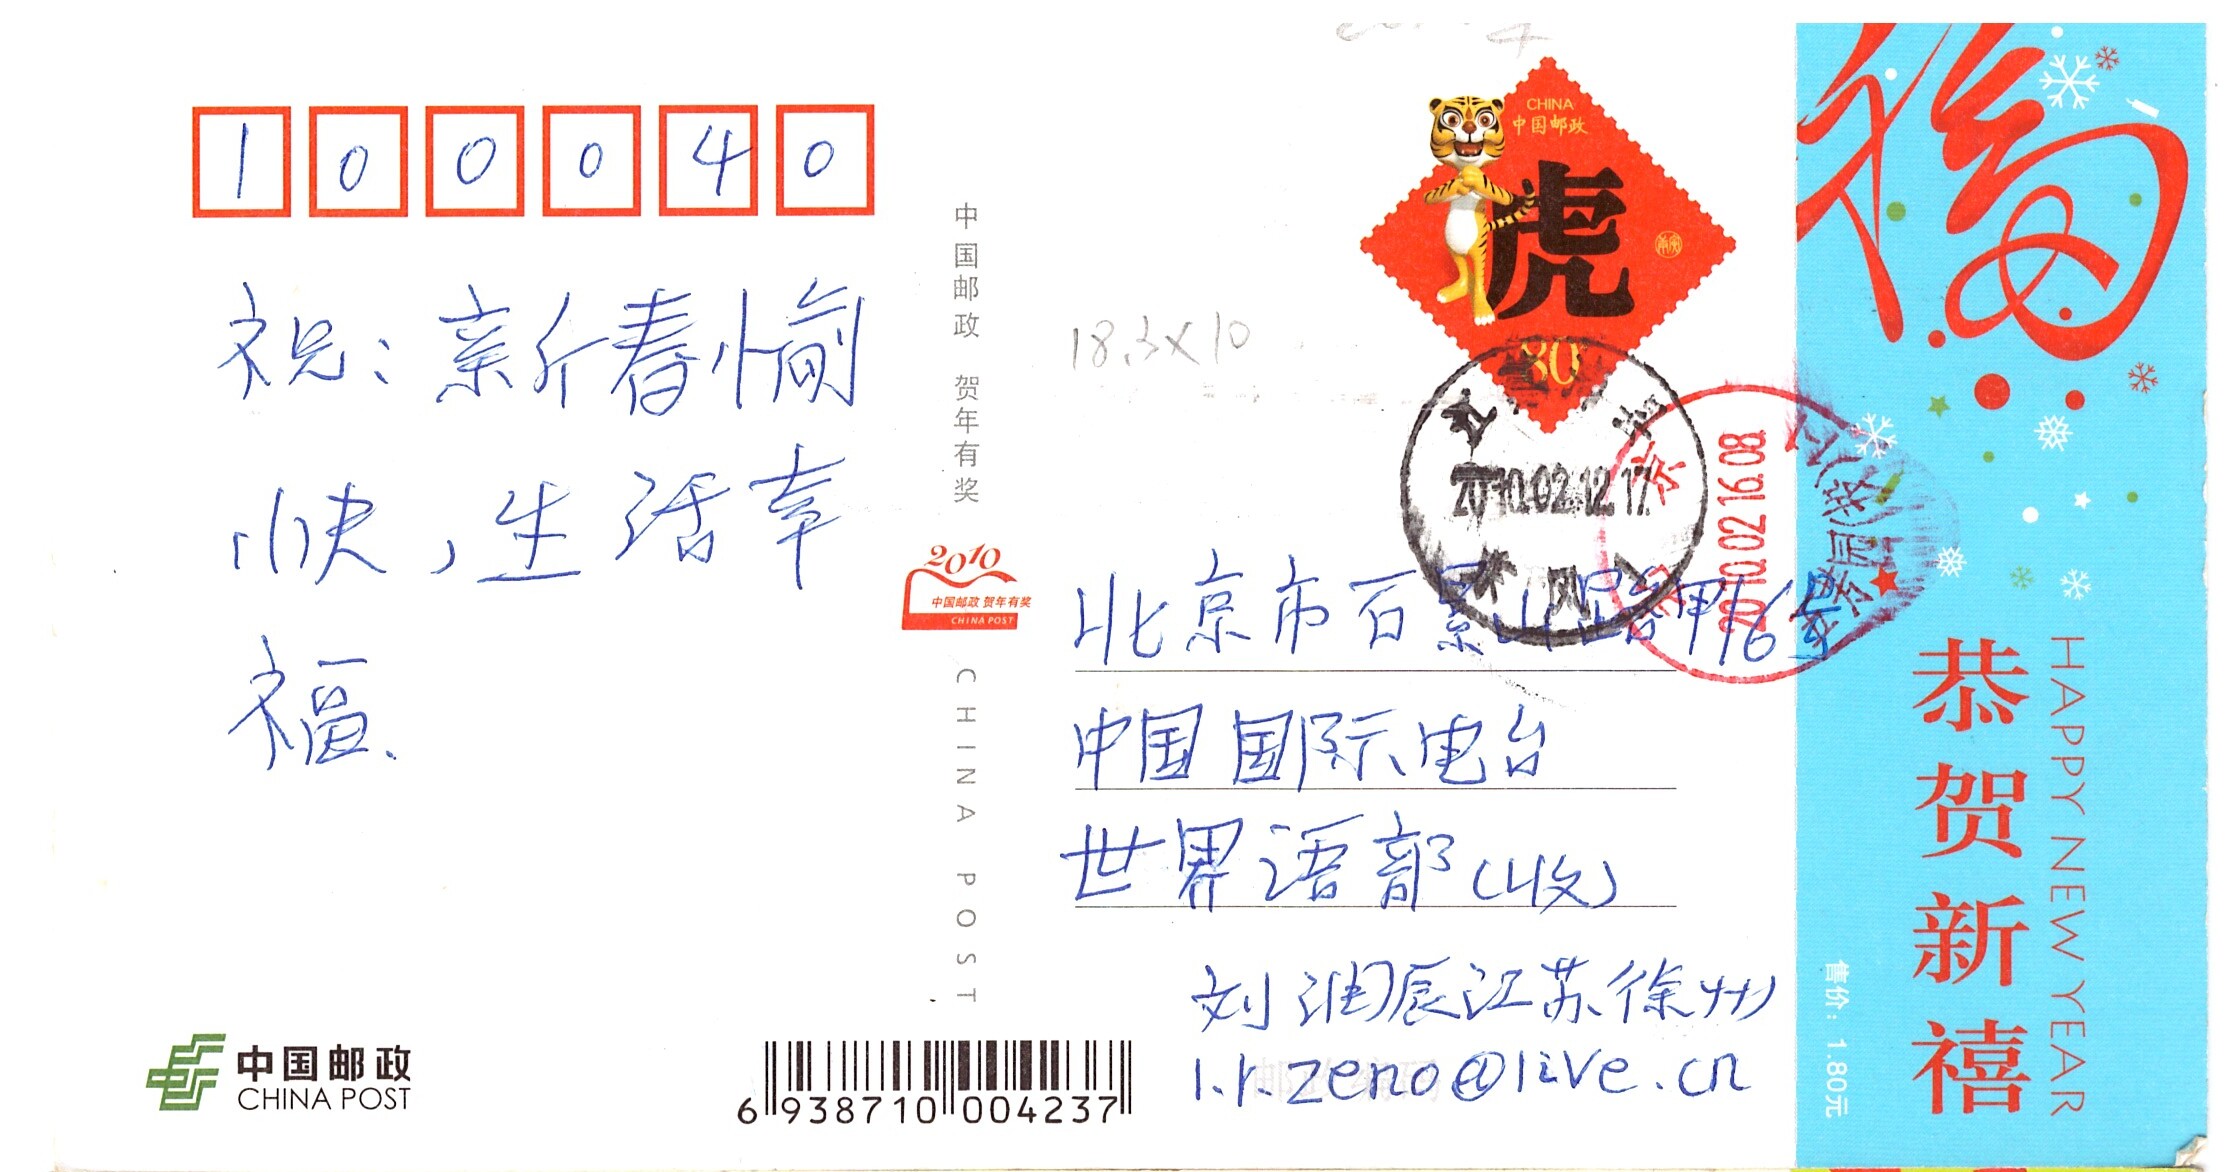 100040
祝：新春愉
快，生活幸
福.
中国邮政 贺年有奖
2010
中国邮政 贺年有奖
CHINA POST
CHINA POST
中国邮政
CHINA POST
6 938710 004237
18.3×10
CHINA
中国邮政
虎
80
2010.02.12.17
京
2010.02.16.08
北京市石景山路甲16号
中国国际电台
世界语部(收)
刘润辰江苏徐州
l.r.zeno@live.cn
邮政编码
福
恭贺新禧
HAPPY NEW YEAR
售价：1.80元